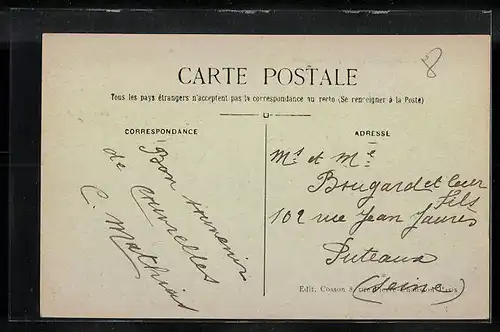 8
CARTE POSTALE
Tous les pays étrangers n'acceptent pas la correspondance au recto (Se renseigner à la Poste)
CORRESPONDANCE
Bon souvenir
de
C. Mathias
ADRESSE
Mr et Me
Bougard et leur
Fils
102 rue Jean Jaurès
Puteaux
(Seine)
Edit. Cosson &